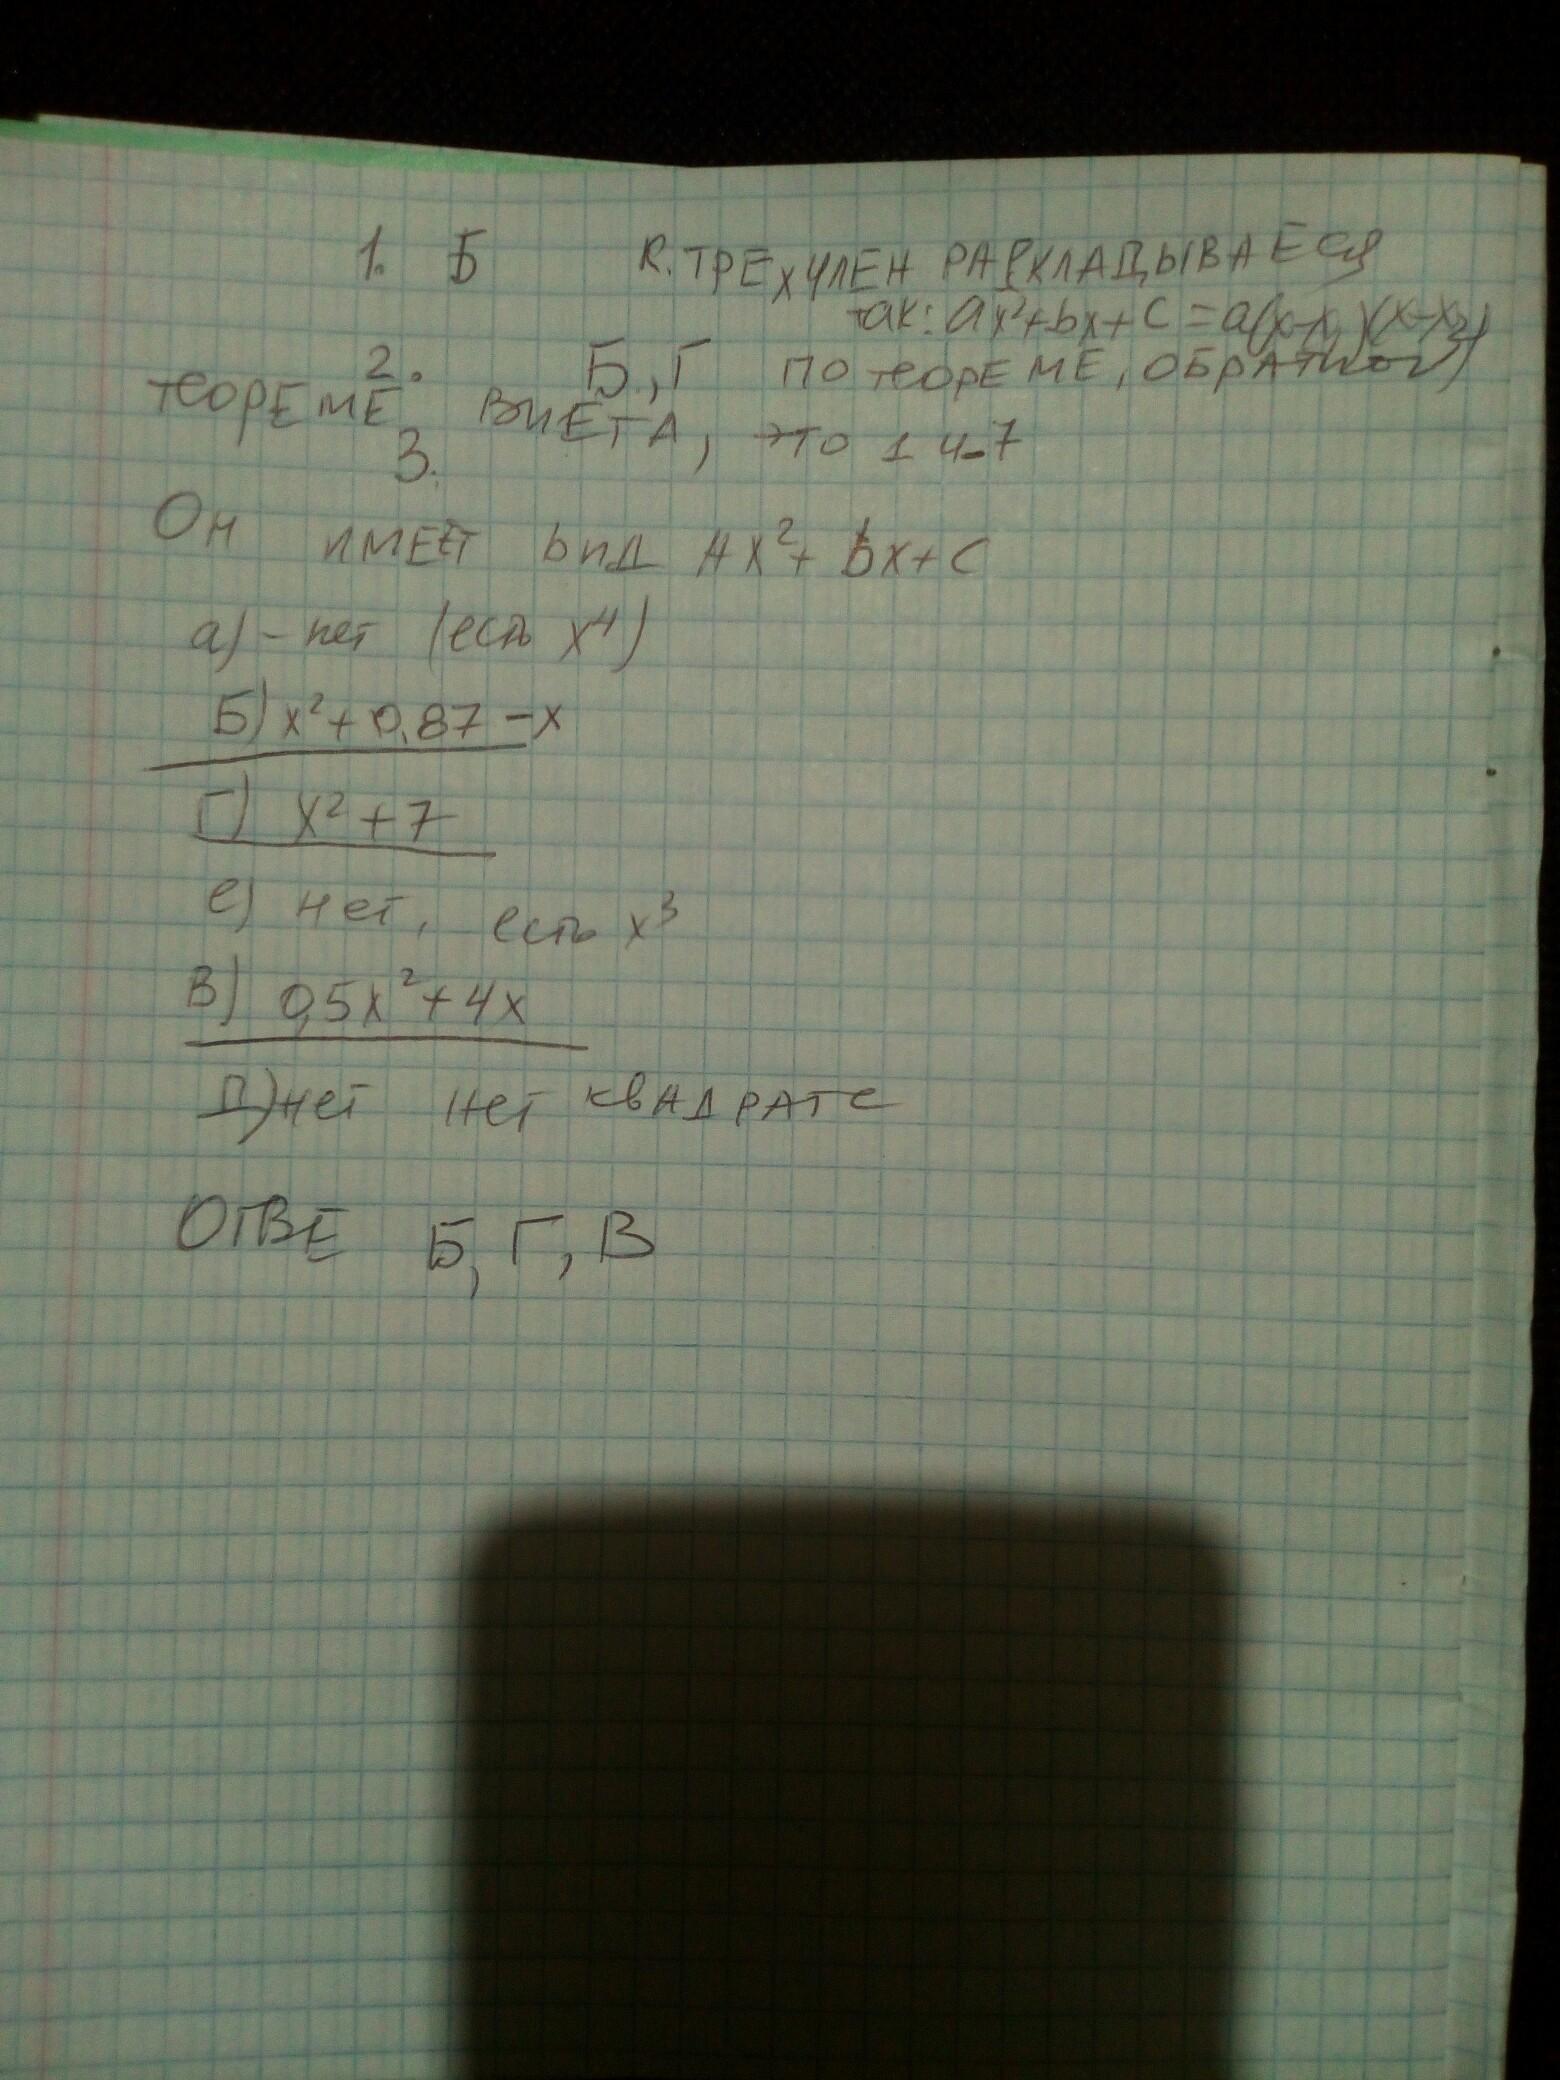 1. Б К. ТРЕХЧЛЕН РАСКЛАДЫВАЕСЯ
так: ax²+bx+c=a(x-x₁)(x-x₂)
2. Б,Г ПО ТЕОРЕМЕ, ОБРАТНОЙ
ТЕОРЕМЕ ВИЕТА, ЭТО 1 и -7
3.
Он ИМЕЕТ ВИД Ax²+ bx+C
а) - нет (есть x⁴)
Б) x²+0,87-x
Г) x²+7
е) нет, есть x³
В) 0,5x²+4x
Д) нет нет КВАДРАТЕ
ОТВЕ Б, Г, В